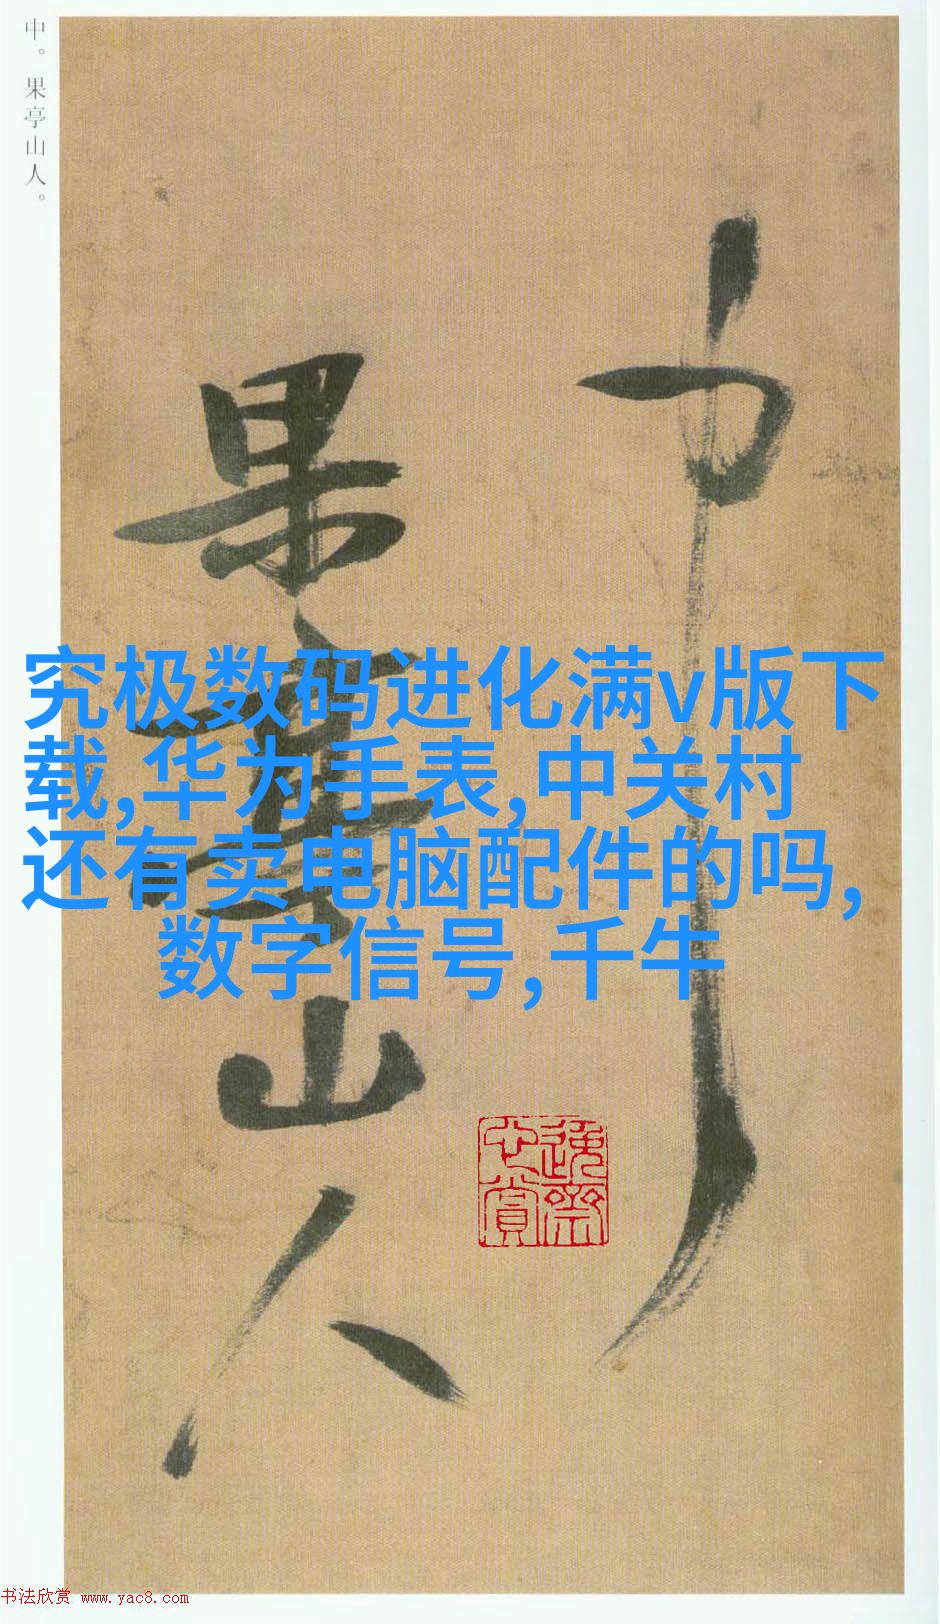 中。果亭山人。
中
果亭山人
究极数码进化满v版下
载,华为手表,中关村
还有卖电脑配件的吗,
数字信号,千牛
逸斋
心赏
书法欣赏 www.yac8.com